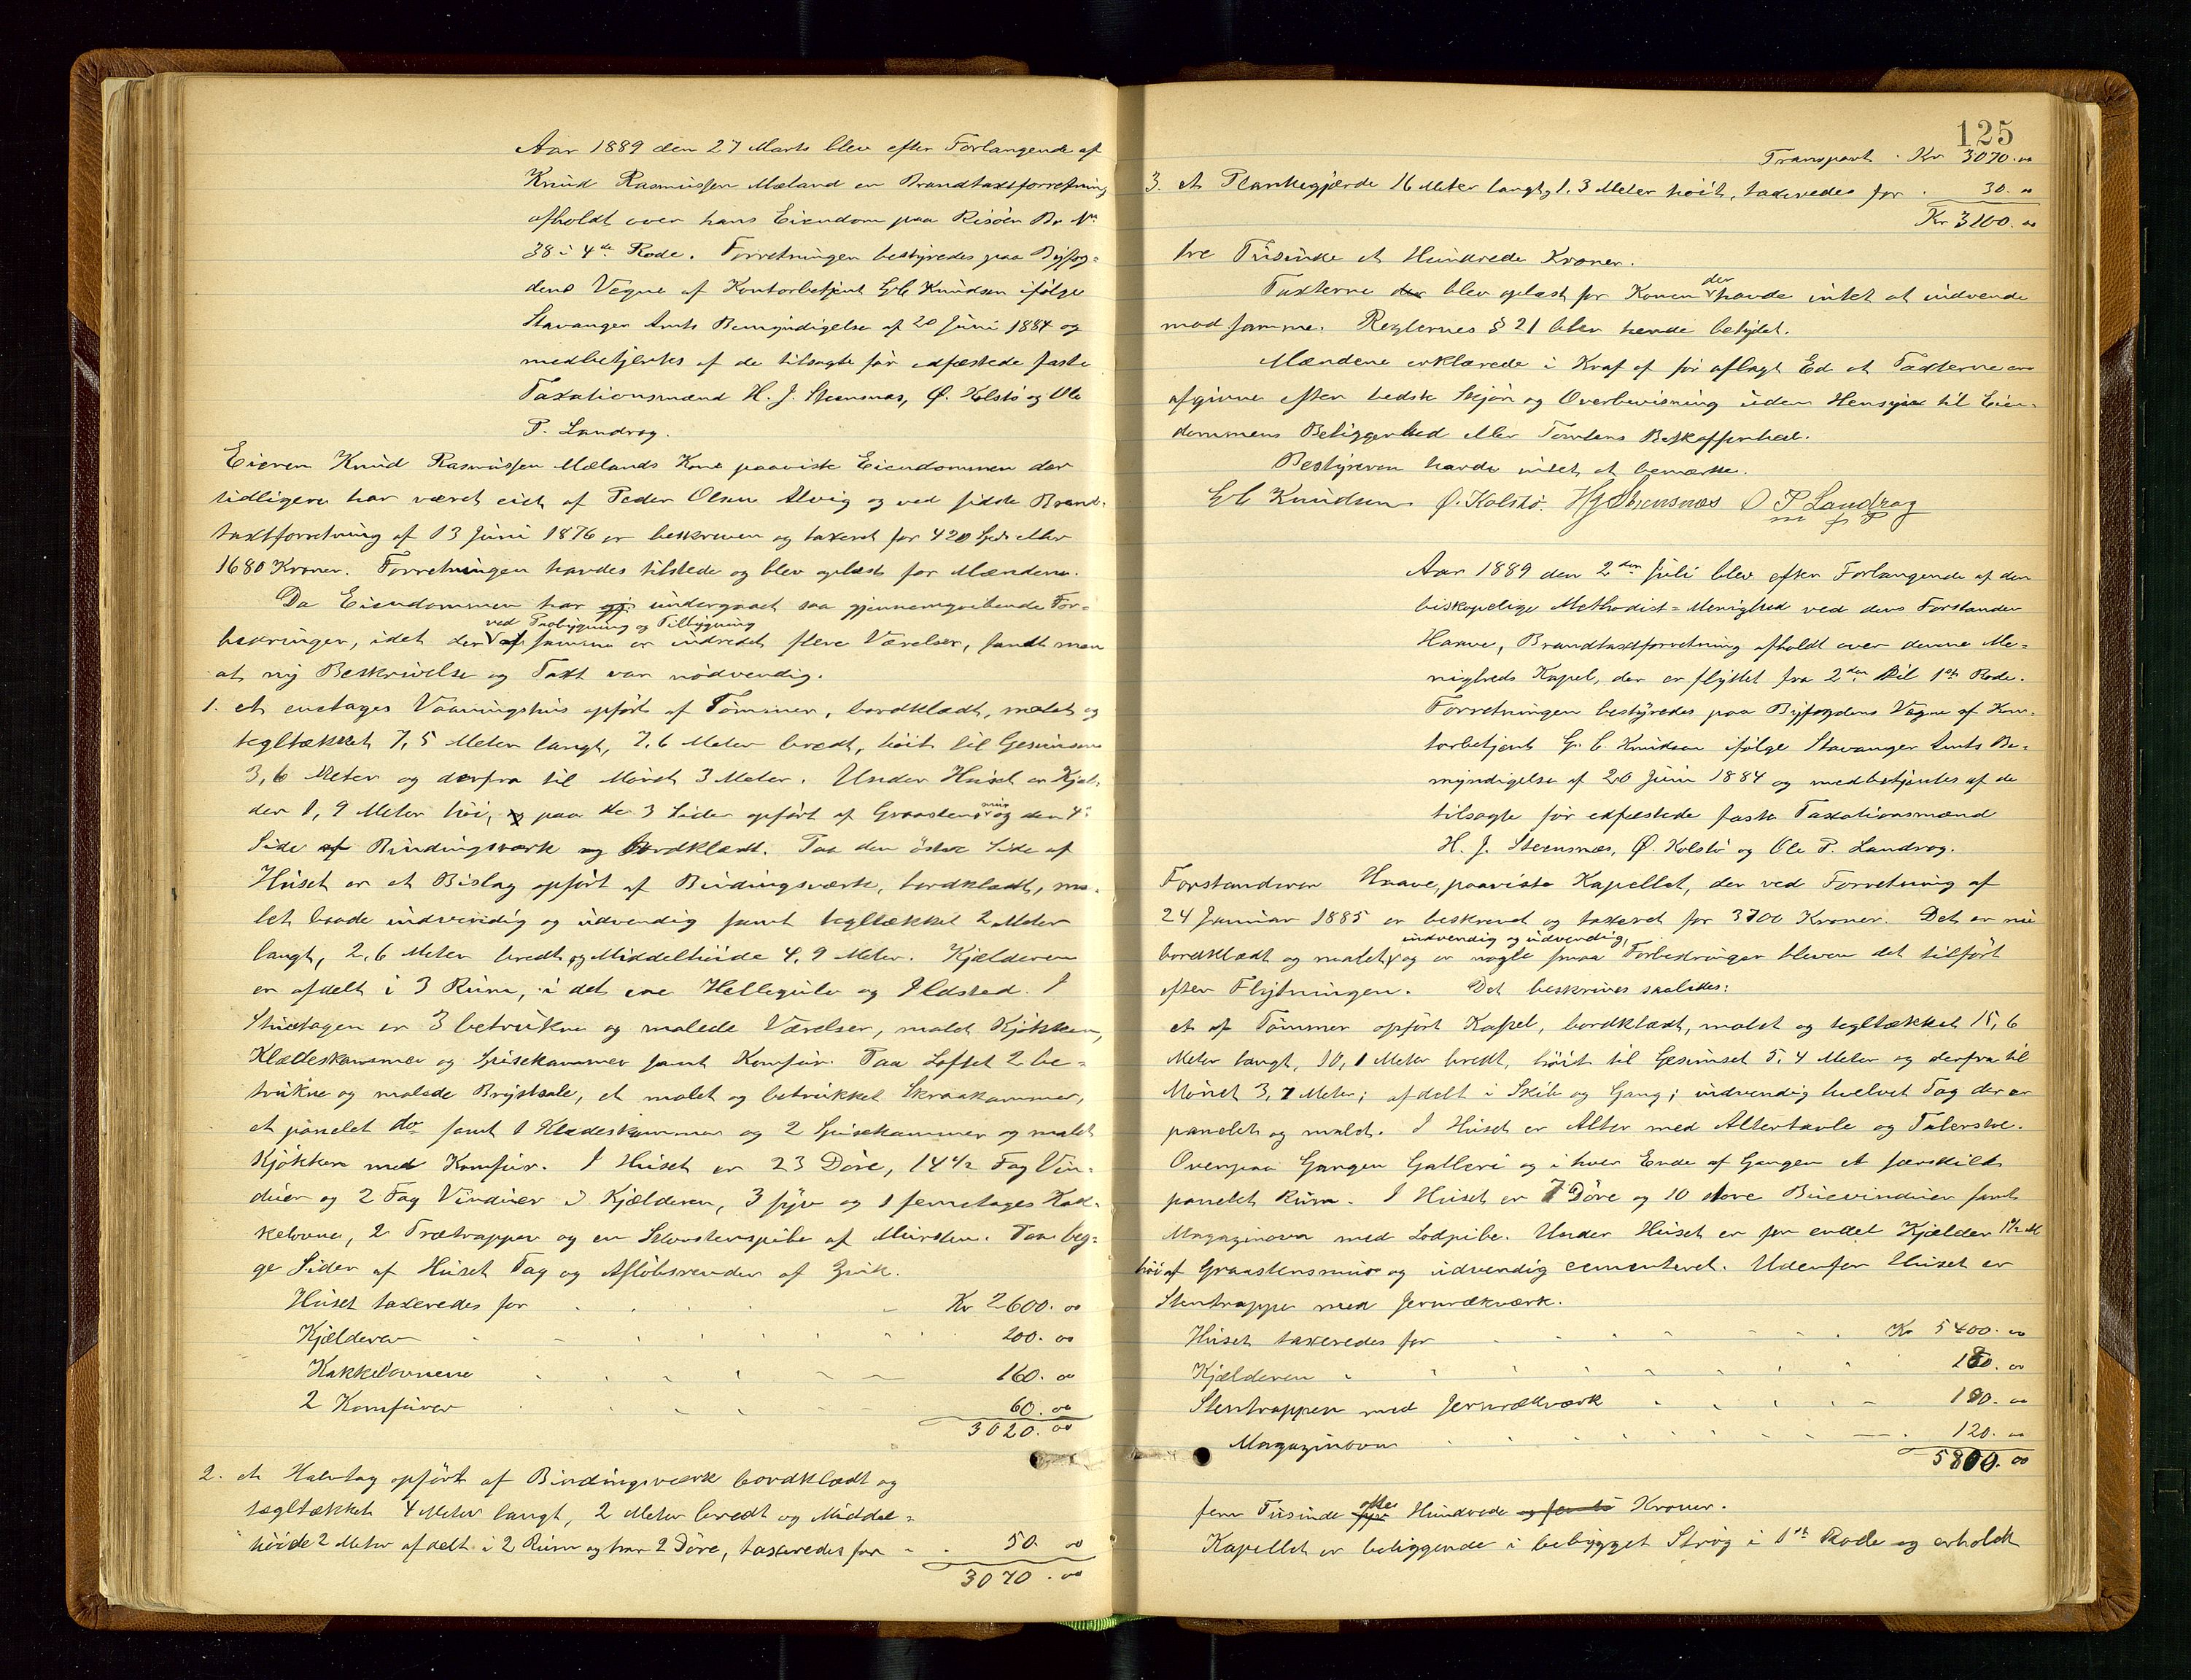 Aar 1889 den 27 Marts blev efter Forlangende af
Knud Rasmussen Mæland en Brandtaxtforretning
afholdt over hans Eiendom paa Risöen Br No
38 i 4de Rode. Forretningen bestyredes paa Byfog=
dens Vegne af Kontorbetjent G C Knudsen ifölge
Stavanger Amts Bemyndigelse af 20 Juni 1884 og
medbetjentes af de tilsagte för edfæstede faste
Taxationsmænd H. J. Steensnæs, Ø. Kolstö og Ole
P. Landrog.
Eieren Knud Rasmussen Mælands Kone paaviste Eiendommen der
tidligere har været eiet af Peder Olsen Alvig og ved sidste Brand=
taxtforretning af 13 Juni 1876 er beskreven og taxeret for 420 Spd eller
1680 Kroner. Forretningen havdes tilstede og blev oplæst for Mændene.
Da Eiendommen har undergaaet saa gjennemgribende For=
ved Paabygning og Tilbygning
bedringer, idet der af samme er indredet flere Værelser, fandt man
at ny Beskrivelse og Taxt var nödvendig.
1. et enetages Vaaningshus opfört af Tömmer, bordklædt, malet og
tegltækket 7,5 Meter langt, 7,6 Meter bredt, höit til Gesimsen
3,6 Meter og derfra til Mönet 3 Meter. Under Huset er Kjæl=
der 1,9 Meter höi, paa de 3 Sider opfört af Graastensmur og den 4de
Side af Bindingsværk og bordklædt. Paa den östre Side af
Huset er et Bislag opfört af Bindingsværk, bordklædt, ma=
let baade indvendig og udvendig samt tegltækket 2 Meter
langt, 2,6 Meter bredt og Middelhöide 4,9 Meter. Kjælderen
er afdelt i 3 Rum, i det ene Hellegulv og Ildsted. I
Stuetagen er 3 betrukne og malede Værelser, malet Kjökken,
Klædeskammer og Spisekammer samt Komfur. Paa Loftet 2 be=
trukne og malede Brystsale, et malet og betrukket Skraakammer,
et panelet do samt 1 Klædeskammer og 2 Spisekammer og malet
Kjökken med Komfur. I Huset er 23 Döre, 14 1/2 Fag Vin=
duer og 2 Fag Vinduer i Kjælderen, 3 fyr og 1 femetages Kak=
kelovne, 2 Trætrapper og en Skorstenspibe af Mursten. Paa beg=
ge Sider af Huset Tag og Aflöbsrender af Zink.
Huset taxeredes for Kr 2600. 00
Kjælderen 200. 00
Kakkelovnene 160. 00
2 Komfurer 60. 00
3020. 00
2. et Halvtag opfört af Bindingsværk bordklædt og
tegltækket 4 Meter langt, 2 Meter bredt og Middel=
höide 2 Meter afdelt i 2 Rum og har 2 Döre, taxeredes for 50 00
3070. 00
125
Transport Kr 3070. 00
3. et Plankegjærde 16 Meter langt, 1.3 Meter höit, taxeredes for 30. 00
Kr 3100. 00
tre Tusinde et Hundrede Kroner.
Taxterne der blev oplæst for Konen der havde intet at indvende
mod samme. Reglernes § 21 blev hende betydet.
Mændene erklærede i Kraf af för aflagt Ed at Taxterne ere
afgivne efter bedste Skjön og Overbevisning uden Hensyn til Eien=
dommens Beliggenhed eller Tomtens Beskaffenhed.
Bestyreren havde intet at bemærke.
G C Knudsen. Ø. Kolstö. H J Steensnæs O P Landrog
m f P
Aar 1889 den 2den Juli blev efter Forlangende af den
biskopelige Methodist=Menighed ved dens Forstander
Haave, Brandtaxtforretning afholdt over denne Me=
nigheds Kapel, der er flyttet fra 2den til 1ste Rode.
Forretningen bestyredes paa Byfogdens Vegne af Kon=
torbetjent G. C. Knudsen ifölge Stavanger Amts Be=
myndigelse af 20 Juni 1884 og medbetjentes af de
tilsagte för edfæstede faste Taxationsmænd
H. J. Steensnæs, Ø. Kolstö og Ole P. Landrog.
Forstanderen Haave, paaviste Kapellet, der ved Forretning af
24 Januar 1885 er beskrevet og taxeret for 3700 Kroner. Det er nu
indvendig og udvendig,
bordklædt og malet og er nogle smaa Forbedringer bleven det tilfört
efter Flytningen. Det beskrives saaledes:
et af Tömmer opfört Kapel, bordklædt, malet og tegltækket 15,6
Meter langt, 10,1 Meter bredt, höit til Gesimset 5,4 Meter og derfra til
Mönet 3,7 Meter; afdelt i Skib og Gang; indvendig hvelvet Tag der er
panelet og malet. I Huset er Alter med Altertavle og Talerstol.
Ovenpaa Gangen Galleri og i hver Ende af Gangen et særskildt
panelet Rum. I Huset er 7 Döre og 10 store Buevinduer samt
Magazinovn med Lodpibe. Under Huset er for endel Kjælder 1 1/2 M
höi af Graastensmur og udvendig cementeret. Udenfor Huset er
Stentrappe med Jernrækværk.
Huset taxeredes for Kr 5400. 00
Kjælderen 180. 00
Stentrappen med Jernrækværk 100. 00
Magazinovn 120. 00
5800. 00
fem Tusinde otte Hundrede Kroner.
Kapellet er beliggende i bebygget Strög i 1ste Rode og erholdt